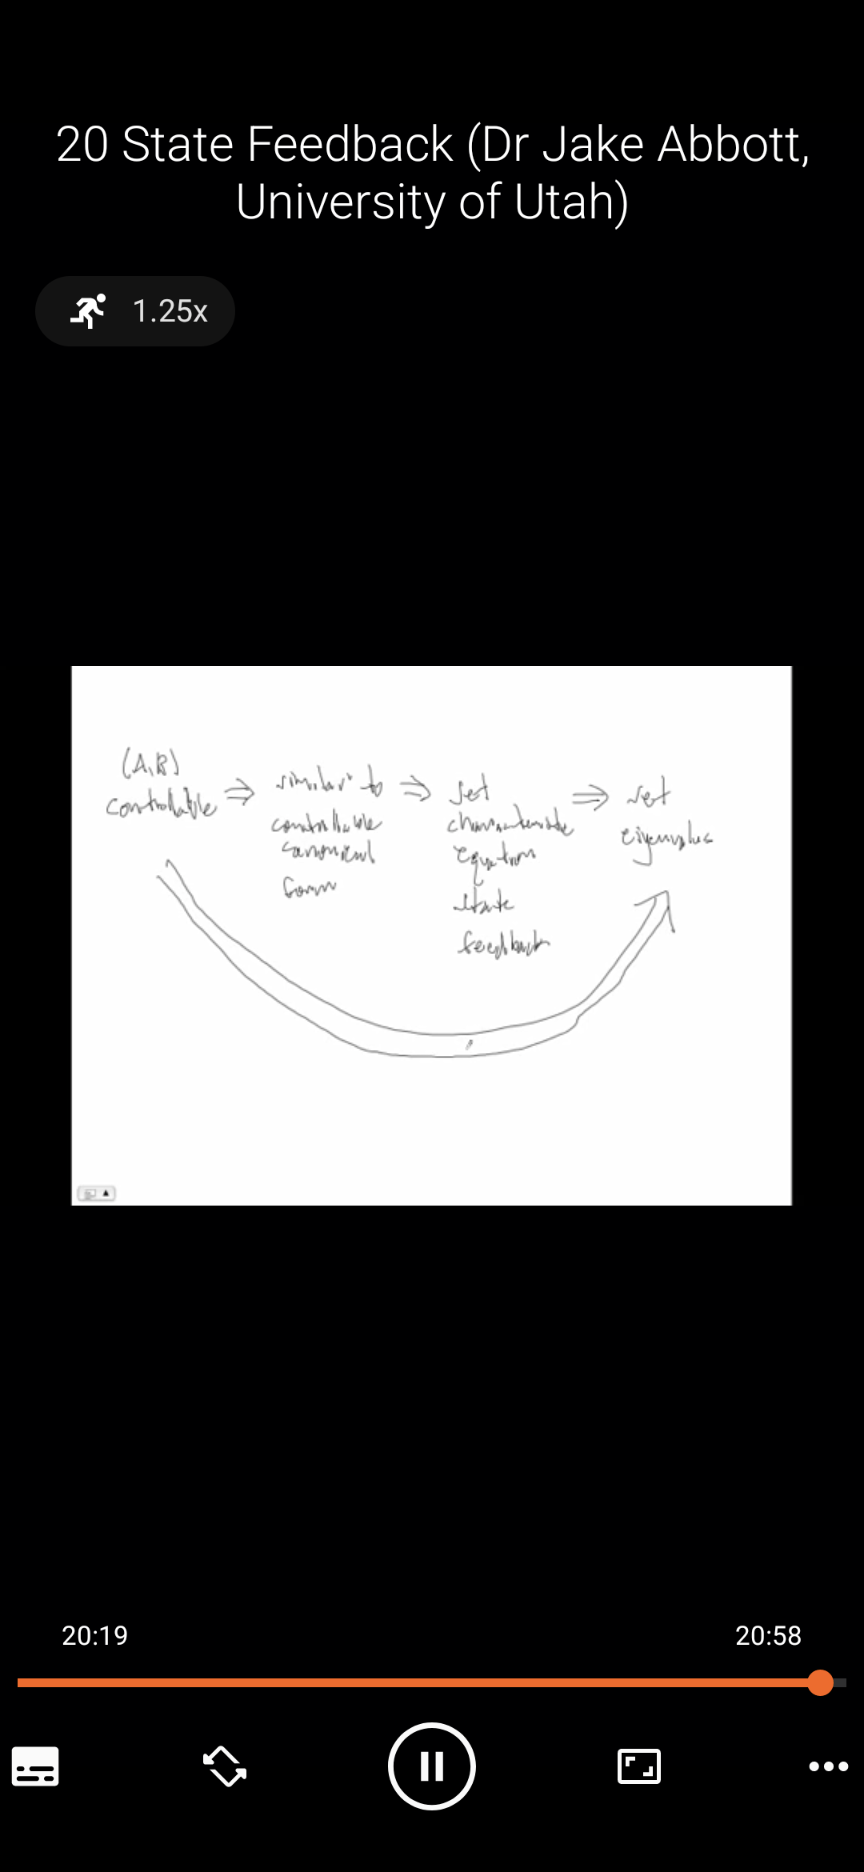 20 State Feedback (Dr Jake Abbott,
University of Utah)
1.25x
(A,B)
controllable ⇒
similar to ⇒
controllable
canonical
form
set
characteristic
equation
state
feedback
⇒ set
eigenvalues
20:19
20:58